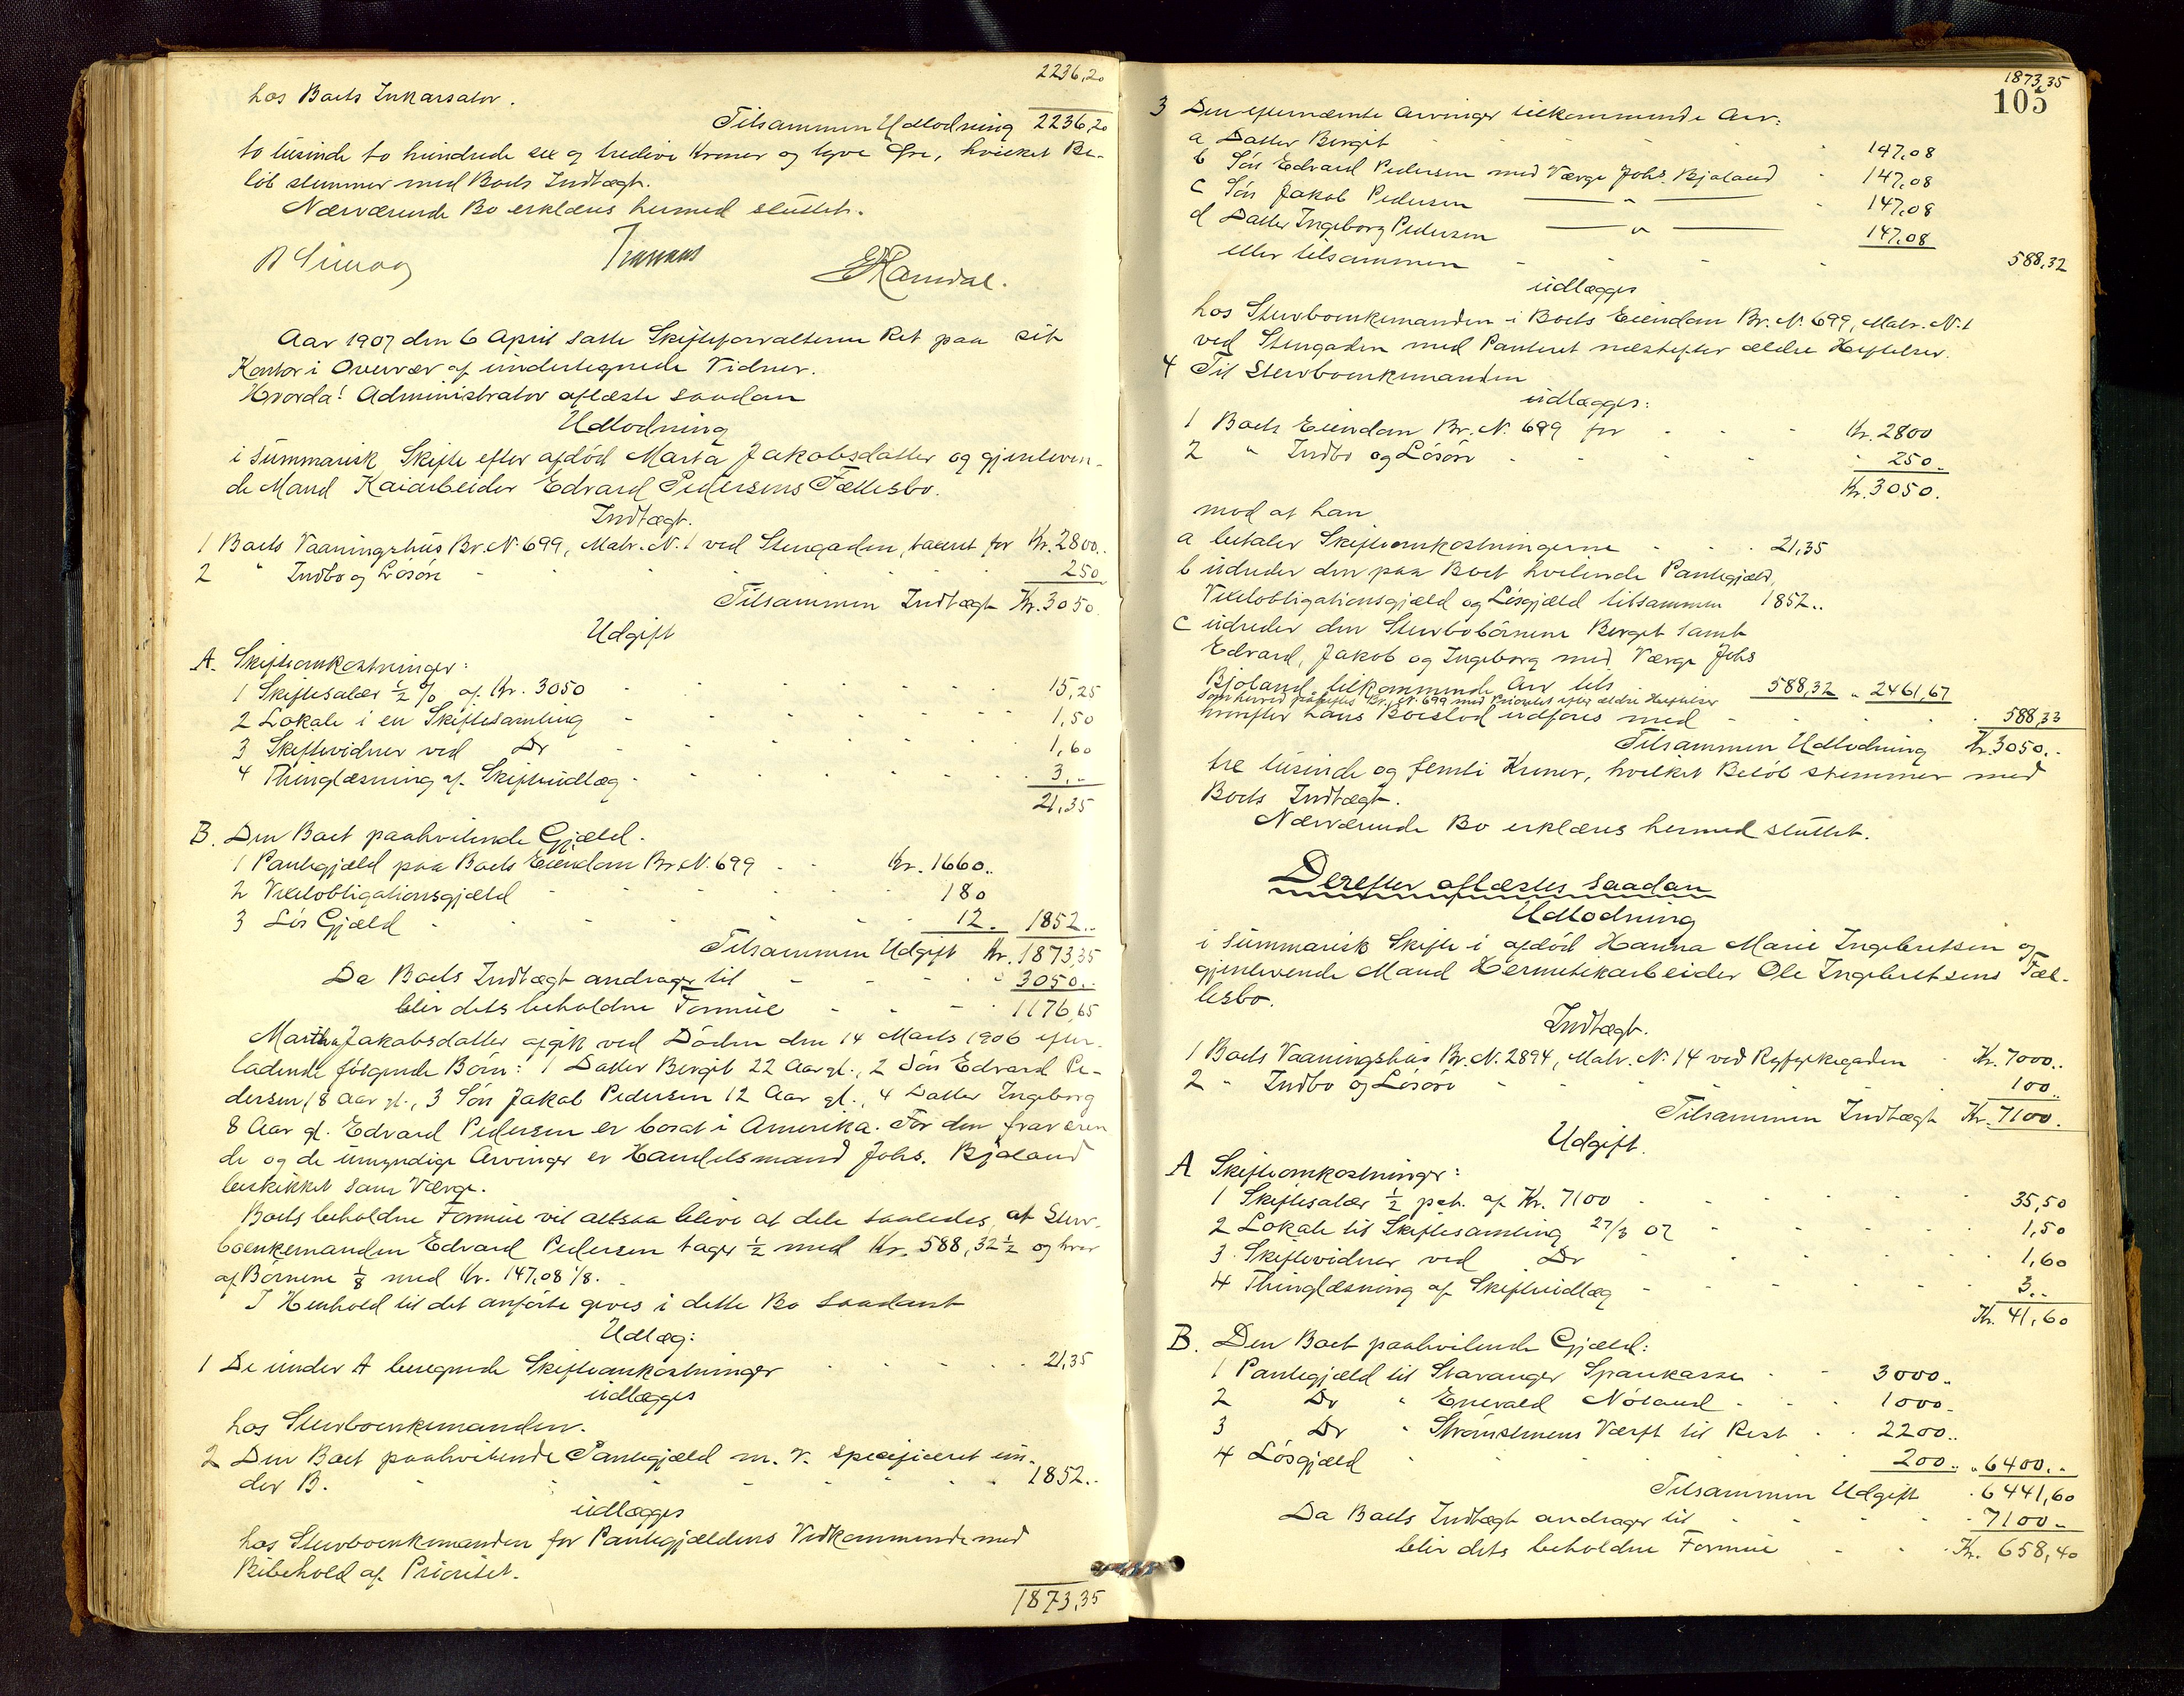 2236,20
hos Boets Inkassator.
Tilsammen Udlodning 2236,20
to tusinde to hundrede sex og tredive Kroner og tyve Øre, hvilket Be-
löb stemmer med Boets Indtægt.
Nærværende Bo erklæres hermed sluttet.
Aar 1907 den 6 April satte Skifteforvalteren Ret paa sit
Kontor i Overvær af undertegnede Vidner.
Hvorda! Administrator aflæste saadan
Udlodning
i summarisk Skifte efter afdöd Marta Jakobsdatter og gjenleven-
de Mand Kaiarbeider Edvard Pedersens Fællesbo.
Indtægt.
1 Boets Vaaningshus Br. N. 699, Matr. N. 1 ved Stengaden, taxeret for Kr. 2800..
2 " Indbo og Lösöre - 250
Tilsammen Indtægt Kr. 3050.
Udgift
A. Skifteomkostninger:
1 Skiftesalær ½ % af Kr. 3050 15,25
2 Lokale i en Skiftesamling 1,50
3 Skiftevidner ved Do 1,60
4 Thinglæsning af Skifteudlæg 3,-
21,35
B. Den Boet paahvilende Gjæld.
1 Pantegjæld paa Boets Eiendom Br. N. 699 Kr. 1660..
2 Vexelobligationsgjæld 180
3 Lös Gjæld 12. 1852..
Tilsammen Udgift Kr. 1873,35
Da Boets Indtægt andrager til 3050..
blir dets beholdne Formue 1176,65
Martha Jakobsdatter afgik ved Döden den 14 Marts 1906 efter-
ladende fölgende Börn: 1 Datter Birgit 22 Aar gl., 2 Sön Edvard Pe-
dersen 18 Aar gl., 3 Sön Jakob Pedersen 12 Aar gl., 4 Datter Ingeborg
8 Aar gl. Edvard Pedersen er bosat i Amerika. For den fraværen
de og de umyndige Arvinger er Handelsmand Johs. Bjaland
beskikket som Værge.
Boets beholdne Formue vil altsaa blive at dele saaledes, at Sterv-
boenkemanden Edvard Pedersen tager ½ med Kr. 588,32½ og hver
af Börnene ⅛ med Kr. 147,08 1/8.
I Henhold til det anförte gives i dette Bo saadant
Udlæg:
1 De under A beregnede Skifteomkostninger 21,35
udlægges
hos Stervboenkemanden.
2 Den Boet paahvilende Pantegjæld m. v. specificeret un-
der B. 1852..
udlægges
hos Stervboenkemanden for Pantegjældens Vedkommende med
Bibehold af Prioritet.
1873,35
1873,35
105
3 Den efternævnte Arvinger tilkommende Arv:
a Datter Bergit 147,08
b Sön Edvard Pedersen med Værge Johs. Bjaland 147,08
c Sön Jakob Pedersen — " — 147,08
d Datter Ingeborg Pedersen — " — 147,08
eller tilsammen 588,32
udlægges
hos Stervboenkemanden i Boets Eiendom Br. N. 699, Matr. N. 1
ved Stengaden med Panteret næstefter ældre Heftelser.
4 Til Stervboenkemanden
udlægges:
1 Boets Eiendom Br. N. 699 for Kr. 2800
2 " Indbo og Lösöre " 250.
Kr. 3050.
mod at han
a betaler Skifteomkostningerne 21,35
b udreder den paa Boet hvilende Pantegjæld,
Vexelobligationsgjæld og Lösgjæld tilsammen 1852..
c udreder den Stervbobörnene Berget samt
Edvard, Jakob og Ingeborg med Værge Johs
Bjoland tilkommende Arv tils 588,32 " 2461,67
som herved paaheftes Br. N. 699 med Prioritet efter ældre Heftelser
hvorefter hans Boeslod udföres med 588,33
Tilsammen Udlodning Kr. 3050.-
tre tusinde og femti Kroner, hvilket Belöb stemmer med
Boets Indtægt.
Nærværende Bo erklæres hermed sluttet.
Derefter aflæstes saadan
Udlodning
i summarisk Skifte i afdöd Hanna Marie Ingebretsen og
gjenlevende Mand Hermetikarbeider Ole Ingebretsens Fæl-
lesbo.
Indtægt.
1 Boets Vaaningshus Br. N. 2894, Matr. N. 14 ved Ryfylkegaden Kr. 7000..
2 " Indbo og Lösöre 100..
Tilsammen Indtægt Kr. 7100.
Udgift.
A Skifteomkostninger:
1 Skiftesalær ½ pct. af Kr. 7100 35,50
2 Lokale til Skiftesamling 27/3 07 1,50
3 Skiftevidner ved Do 1,60
4 Thinglæsning af Skifteudlæg 3..
Kr. 41,60
B. Den Boet paahvilende Gjæld:
1 Pantegjæld til Stavanger Sparekasse 3000..
2 Do " Enevald Nöland 1000.
3 Do " Strömstenens Værft til Rest 2200..
4 Lösgjæld 200.. " 6400.-
Tilsammen Udgift 6441,60
Da Boets Indtægt andrager til 7100.-
blir dets beholdne Formue Kr. 658,40